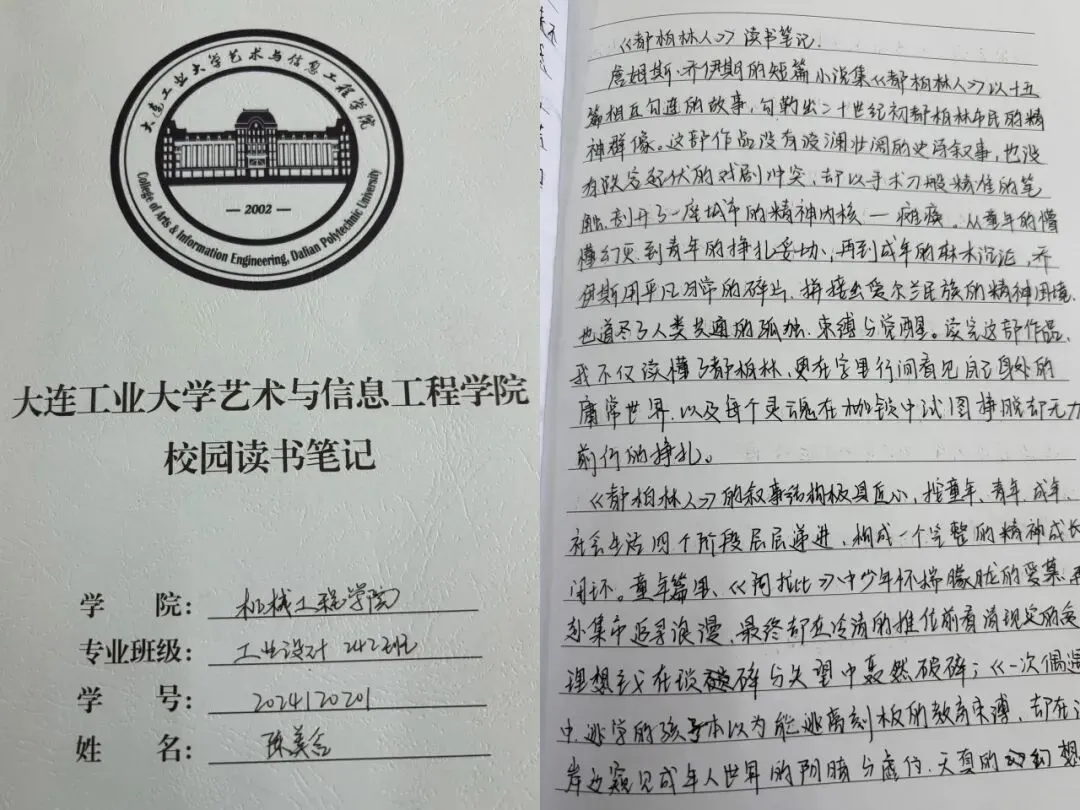 大连工业大学艺术与信息工程学院
2002
College of Arts & Information Engineering, Dalian Polytechnic University
大连工业大学艺术与信息工程学院
校园读书笔记
学 院：机械工程学院
专业班级：工业设计 242班
学 号：2024120201
姓 名：陈美含
《都柏林人》读书笔记.
詹姆斯·乔伊斯的短篇小说集《都柏林人》以十五
篇相互勾连的故事，勾勒出二十世纪初都柏林市民的精
神群像。这部作品没有波澜壮阔的史诗叙事，也没
有跌宕起伏的戏剧冲突，却以手术刀般精准的笔
触，剖开了一座城市的精神内核—瘫痪。从童年的懵
懂幻灭，到青年的挣扎妥协，再到成年的麻木沉沦，乔
伊斯用平凡日常的碎片，拼接出爱尔兰民族的精神困境，
也道尽了人类共通的孤独、束缚与觉醒。读完这部作品，
我不仅读懂了都柏林，更在字里行间看见自己身处的
庸常世界，以及每个灵魂在枷锁中试图挣脱却无力
前行的挣扎。
《都柏林人》的叙事结构极具匠心，按童年、青年、成年、
社会生活四个阶段层层递进，构成一个完整的精神成长
闭环。童年篇里，《阿拉比》中少年怀揣朦胧的爱慕，
赴集市追寻浪漫，最终却在冷清的摊位前看清现实的
理想主义在琐碎与失望中轰然破碎；《一次偶遇
中，逃学的孩子本以为能逃离刻板的教育束缚，却在
岸边窥见成年人世界的阴暗与虚伪，天真的幻想